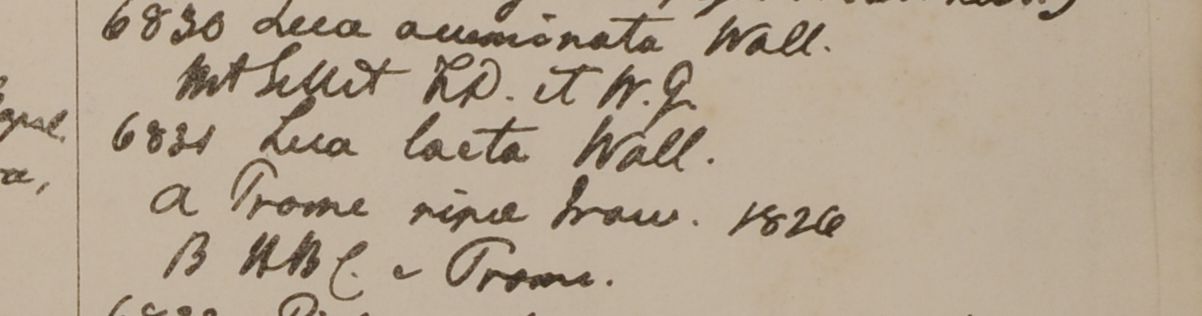 6830 Leea acuminata Wall.
Mt Sillet F.D. et W.G.
6831 Leea laeta Wall.
a,
A Prome ripæ Iraw. 1826
B HBC. e Prome.